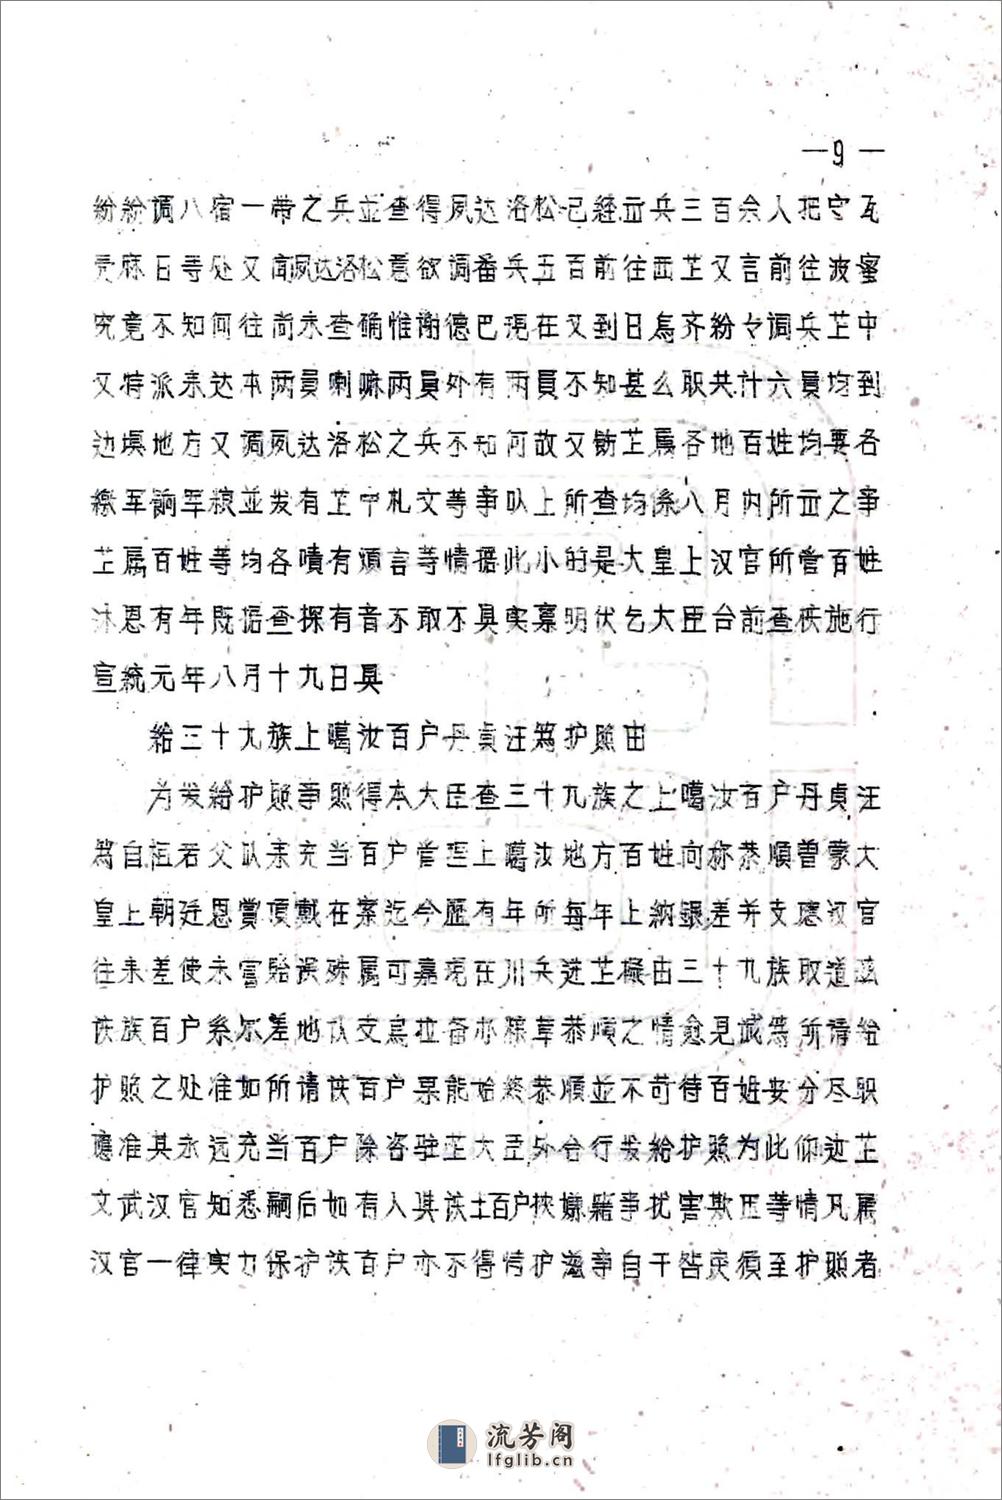 —9—
纷纷调八宿一带之兵並查得夙达洛松已经出兵三百余人把守瓦
贡麻日等处又闻夙达洛松意欲调番兵五百前往西芷又言前往波密
究竟不知何往尚未查确惟谢德巴现在又到日烏齐纷々调兵芷中
又特派来达本两員喇嘛两員外有两員不知甚么职共计六員均到
边坝地方又调夙达洛松之兵不知何故又飭芷属各地百姓均要各
缴军餉军粮並发有芷中札文等事以上所查均系八月内所出之事
芷属百姓等均各嘖有煩言等情据此小的是大皇上汉官所管百姓
沐恩有年既据查探有音不敢不具实禀明伏乞大臣台前查核施行
宣統元年八月十九日具
给三十九族上噶汝百户丹貞汪篤护照由
为发给护照事照得本大臣查三十九族之上噶汝百户丹貞汪
篤自祖若父以来充当百户管理上噶汝地方百姓向称恭順曾蒙大
皇上朝廷恩賞頂戴在案迄今歷有年所每年上納銀差并支應汉官
往来差使未尝貽误殊属可嘉现在川兵进芷擬由三十九族取道兹
该族百户系尔差地认支烏拉备办粮草恭順之情愈見诚篤所请给
护照之处准如所请该百户果能始終恭順並不苛待百姓安分尽职
應准其永远充当百户除咨駐芷大臣外合行发給护照为此仰边芷
文武汉官知悉嗣后如有人與该土百户挾嫌賭爭扰害欺压等情凡属
汉官一律实力保护该百户亦不得恃护滋事自干咎戾須至护照者
流芳阁
lfglib.cn